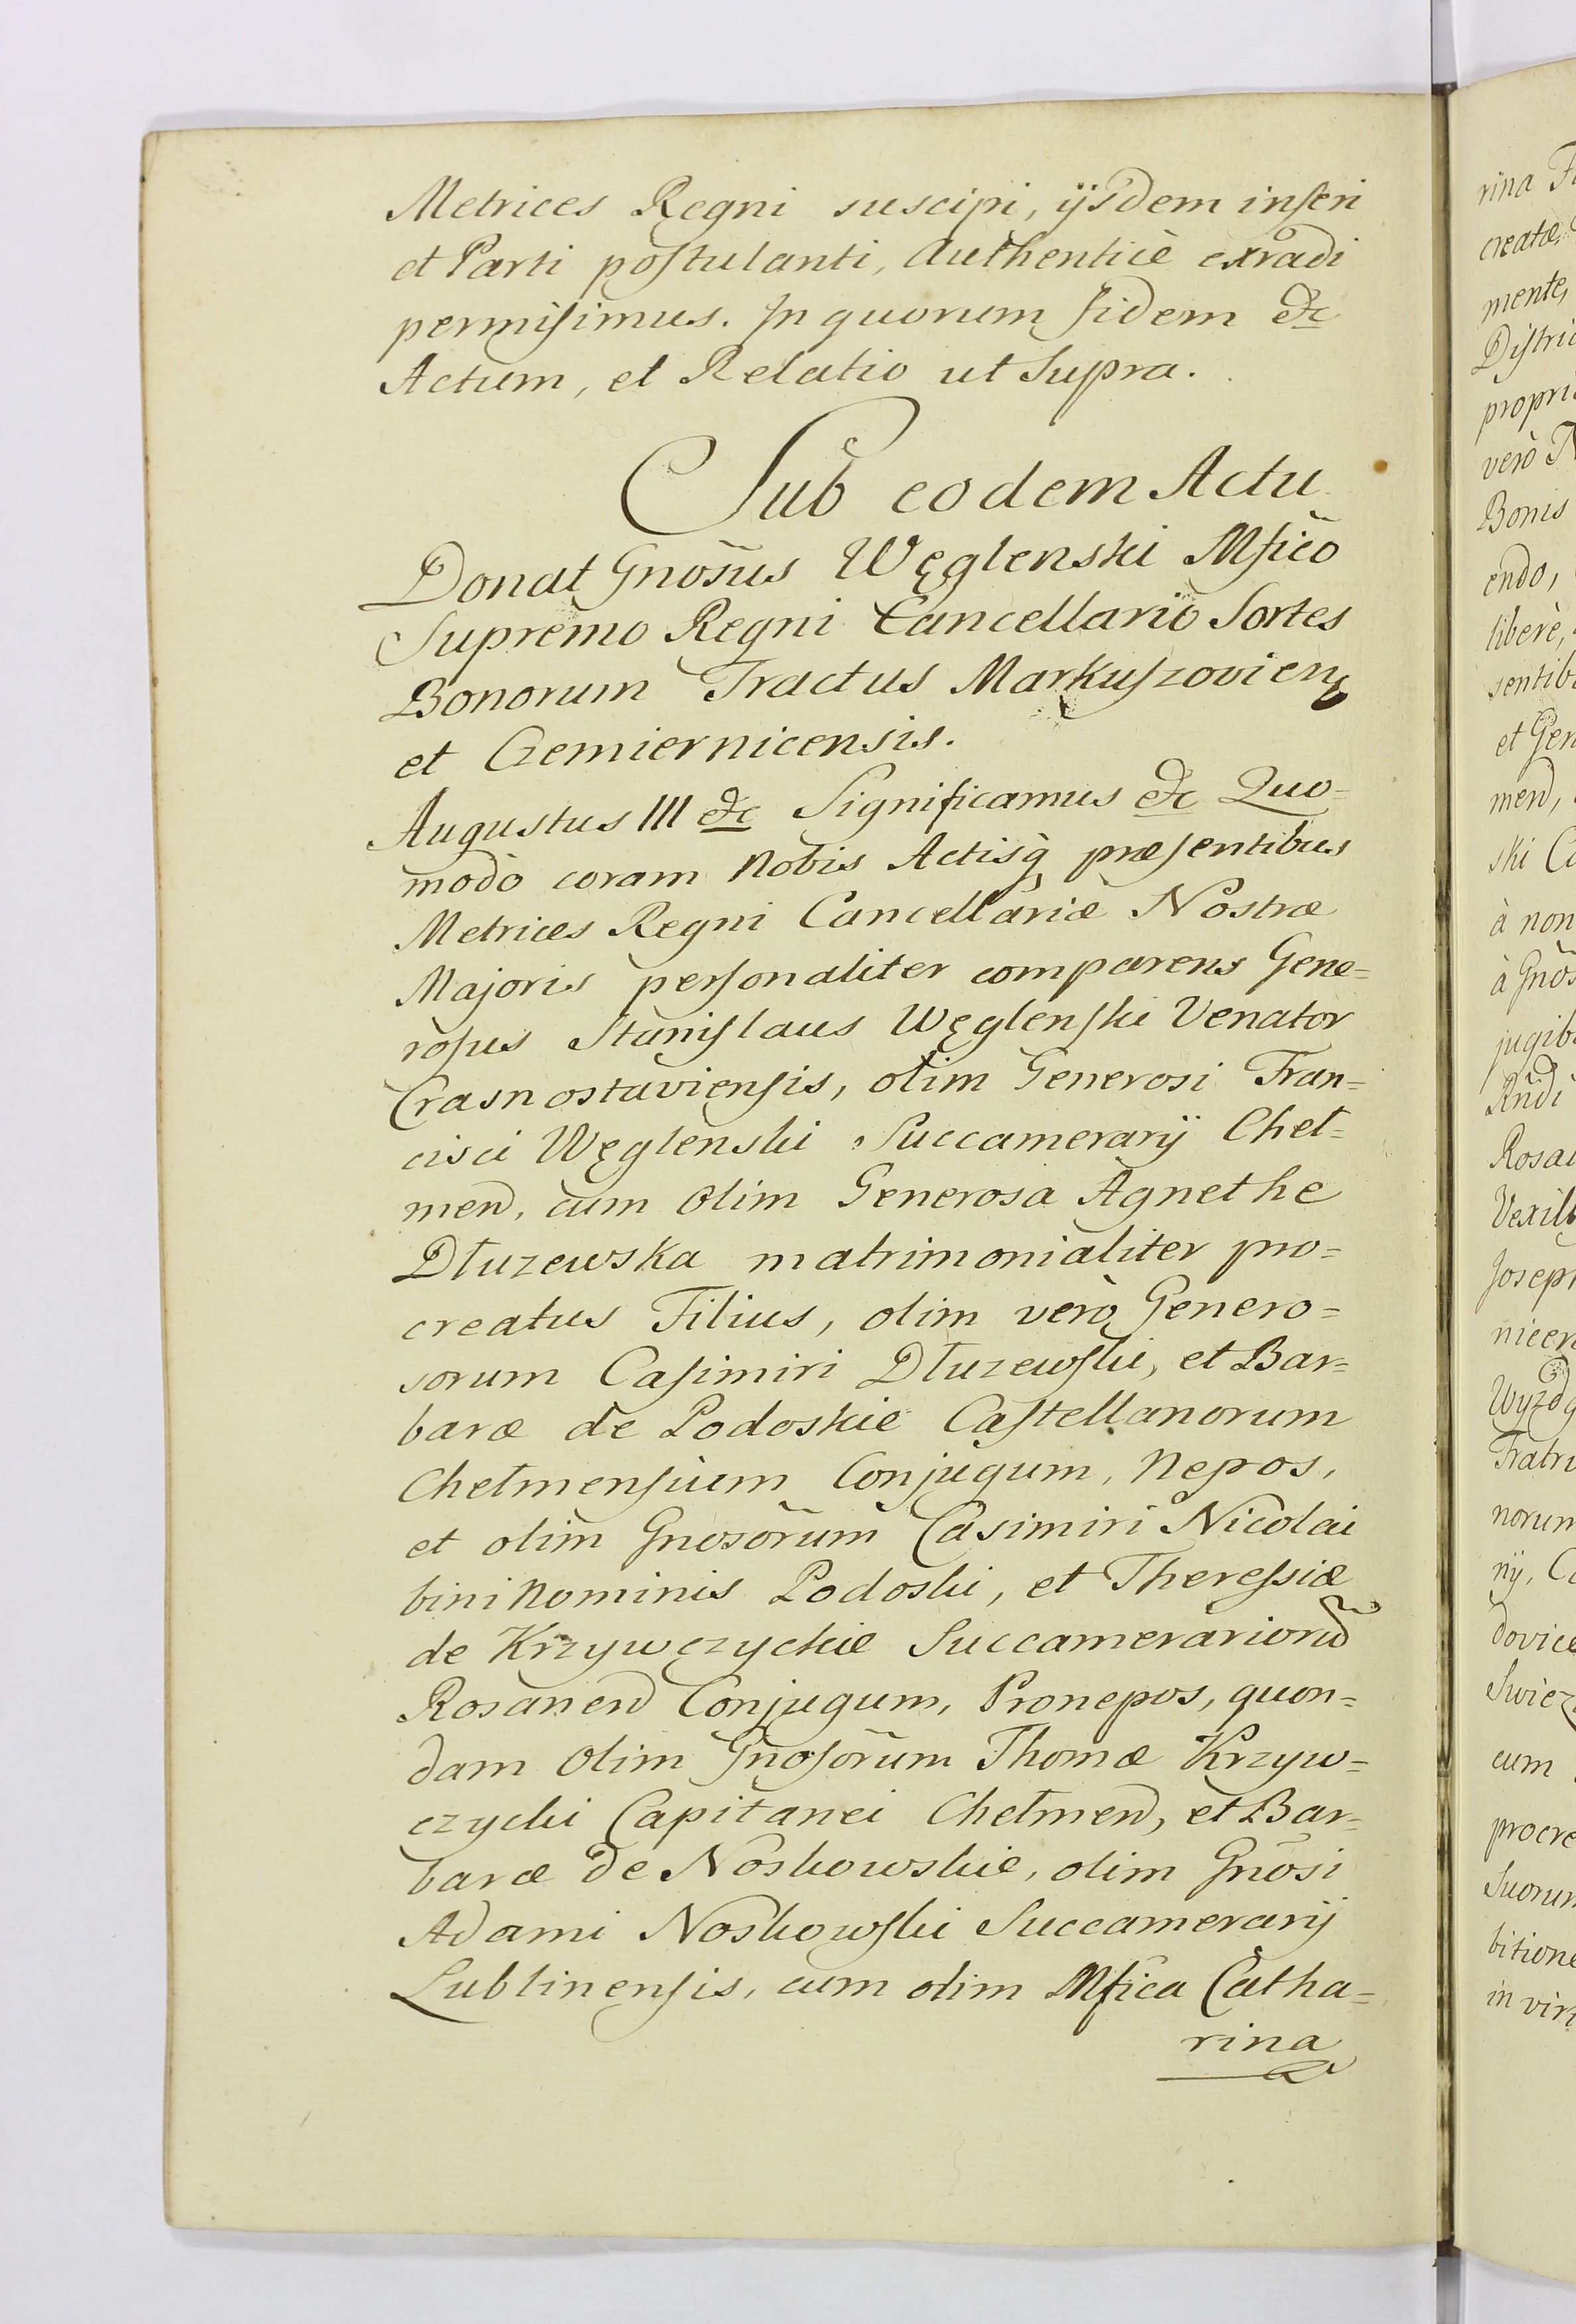 Metrices Regni suscipi, ijsdem inseri
et Parti postulanti, Authenticè extradi
permisimus. In quorum fidem &c
Actum, et Relatio ut Supra.
Sub eodem Actu
Donat Gnosus Węglenski Mfico
Supremo Regni Cancellario Sortes
Bonorum Tractus Markuszovien
et Czemiernicensis.
Augustus III &c Significamus &c Quo=
modò coram Nobis Actisq præsentibus
Metrices Regni Cancellariæ Nostræ
Majoris personaliter comparens Gene=
rosus Stanislaus Węglenski Venator
Crasnostaviensis, olim Generosi Fran=
cisci Węglenski Succamerarij Cheł=
men, cum olim Generosa Agnethe
Dłuzewska matrimonialiter pro=
creatus Filius, olim verò Genero=
sorum Casimiri Dłuzewski, et Bar=
baræ de Podoskie Castellanorum
Chełmensium Conjugum, Nepos,
et olim Gnosorum Casimiri Nicolai
bini Nominis Podoski, et Theressiæ
de Krzywczyckie Succamerariorum
Rosanen Conjugum, Pronepos, quon=
dam olim Gnosorum Thomæ Krzyw=
czycki Capitanei Chełmen, et Bar=
baræ de Noskowskie, olim Gnosi
Adami Noskowski Succamerarij
Lublinensis, cum olim Mfica Catha=
rina
rina
creatæ,
mente,
propri
verò
Bonis
endo,
liberè,
sentib
et Gen
men,
ski
à non
à Gnos
jugib
Rndi
Vexill
Joseph
nicen
Fratru
norum
nij,
dovice
cum
procre
Suorum
bitione
in vir